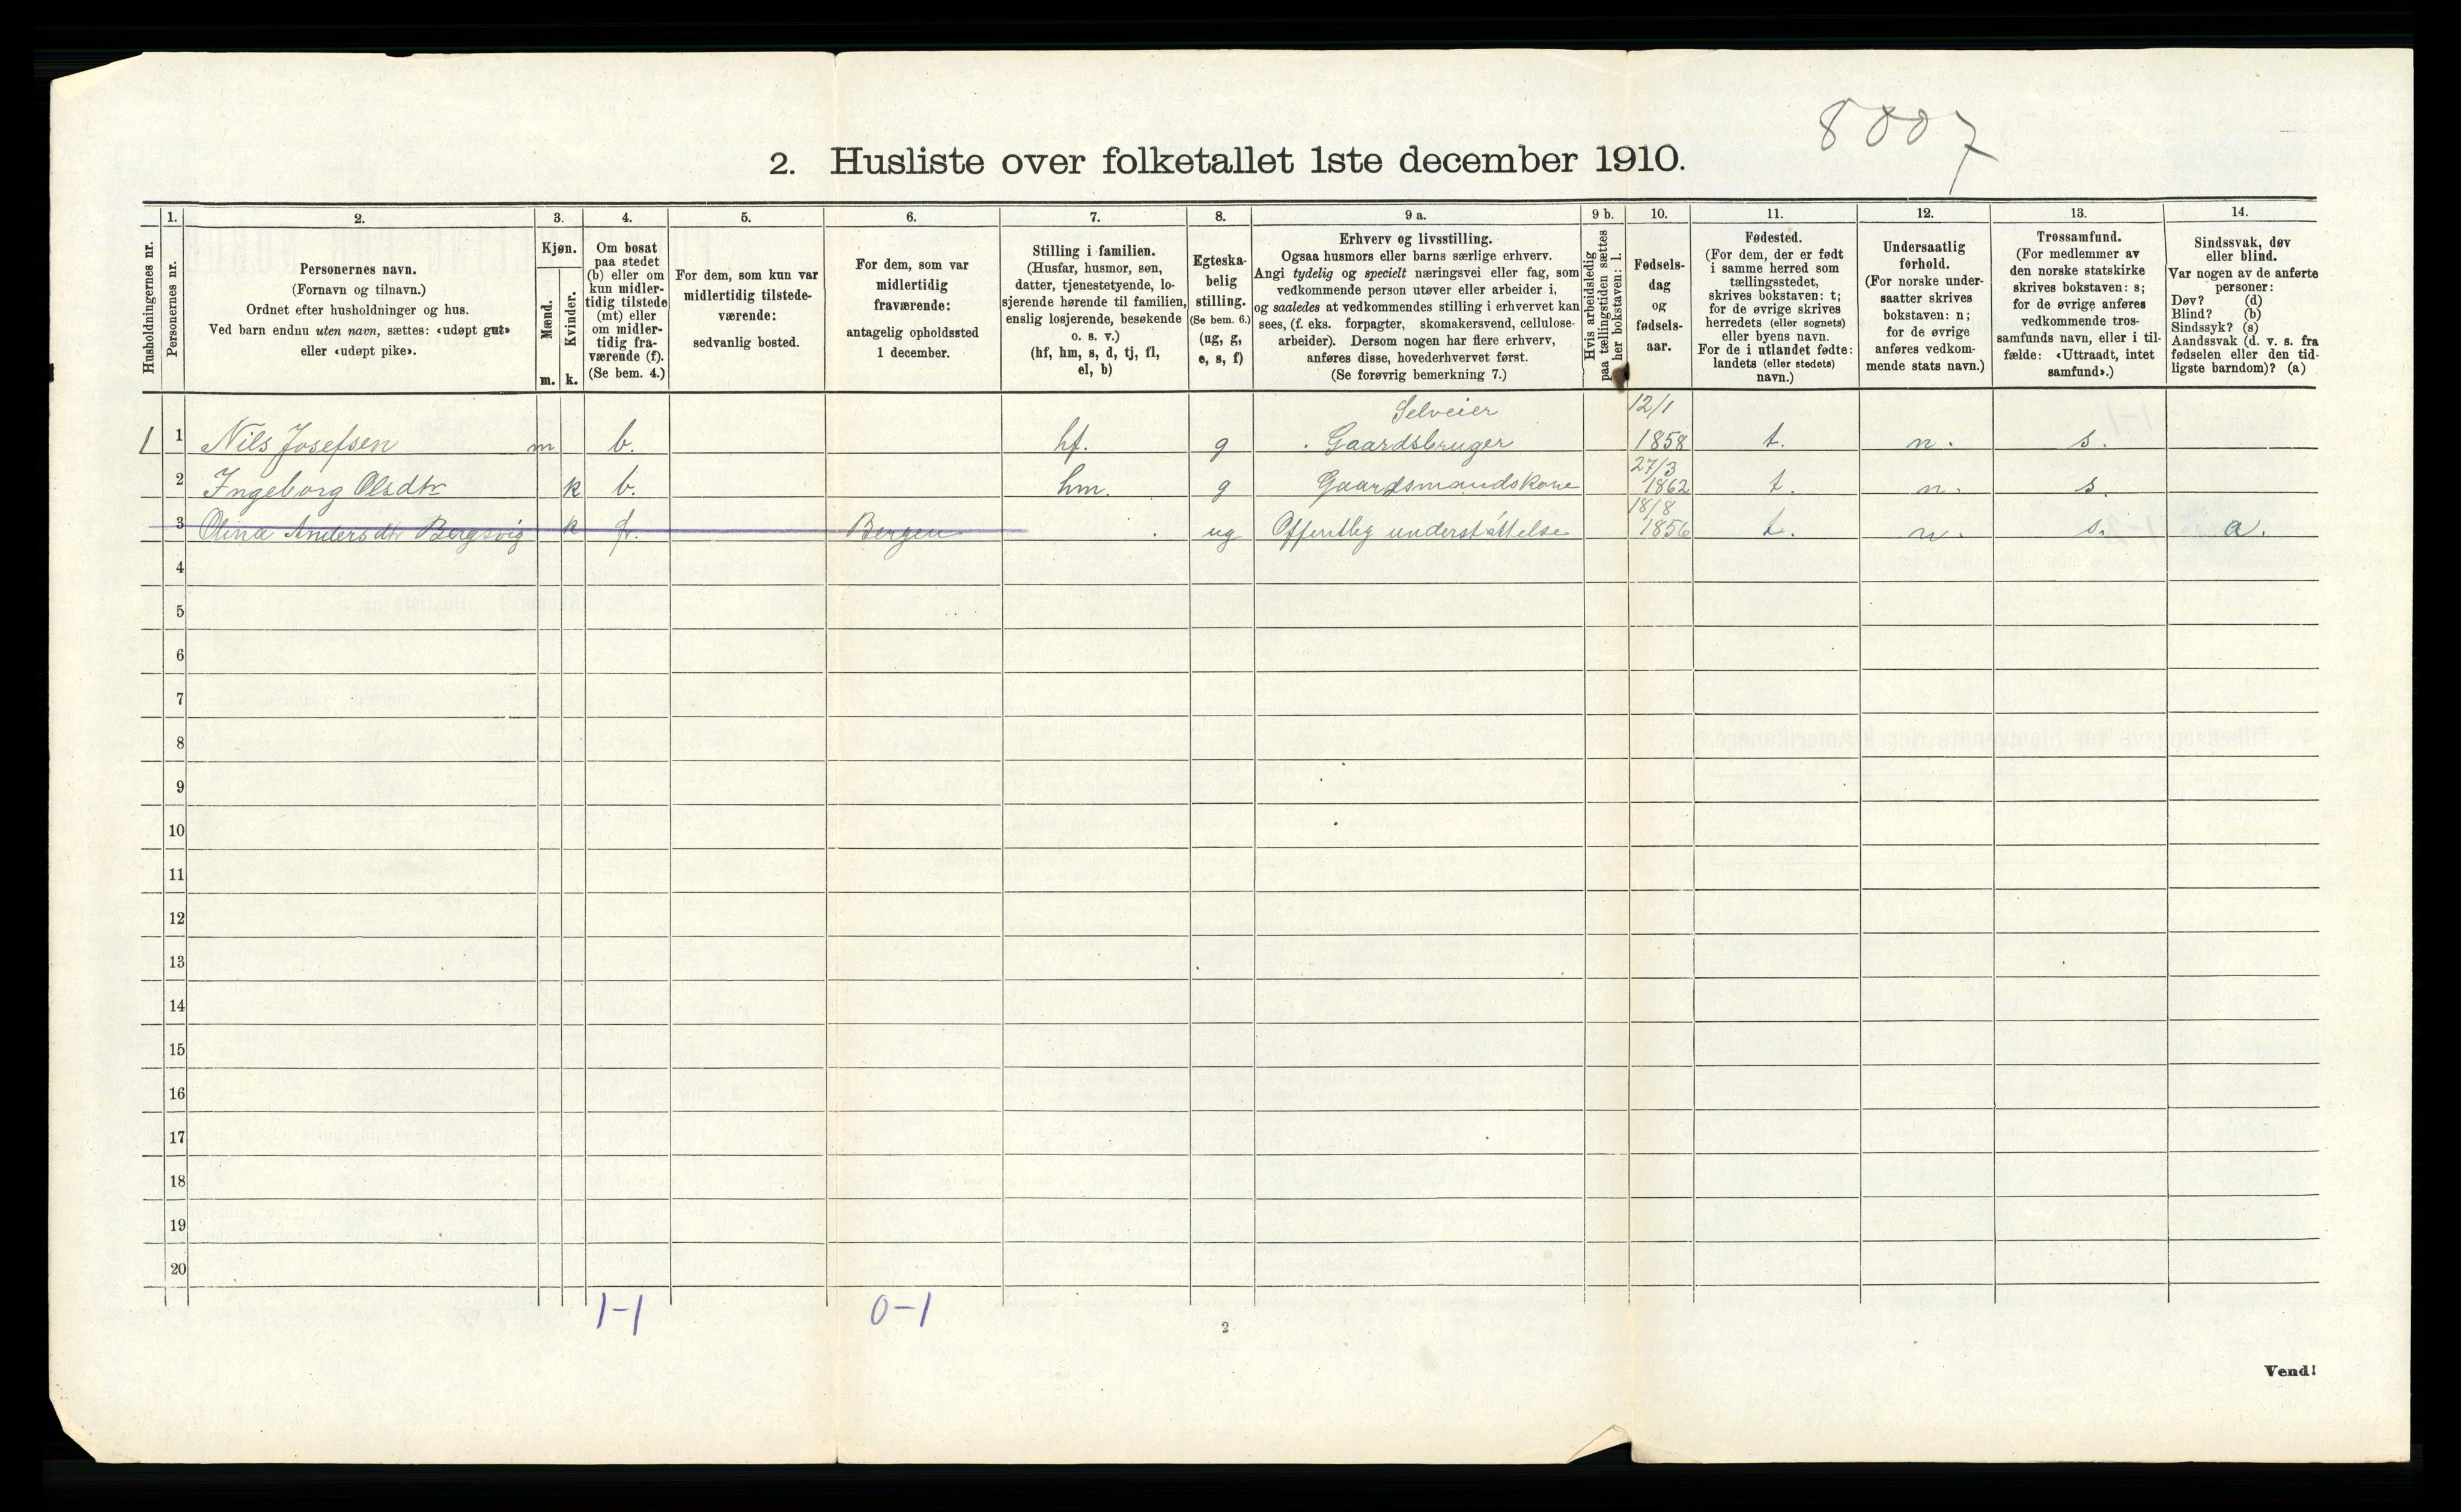 8007
2. Husliste over folketallet 1ste december 1910.
Husholdningernes nr.
1.
Personernes nr.
2.
Personernes navn.
(Fornavn og tilnavn.)
Ordnet efter husholdninger og hus.
Ved barn endnu uten navn, sættes: «udøpt gut»
eller «udøpt pike».
3.
Kjøn.
Mænd.
m.
Kvinder.
k.
4.
Om bosat
paa stedet
(b) eller om
kun midler-
tidig tilstede
(mt) eller
om midler-
tidig fra-
værende (f).
(Se bem. 4.)
5.
For dem, som kun var
midlertidig tilstede-
værende:
sedvanlig bosted.
6.
For dem, som var
midlertidig
fraværende:
antagelig opholdssted
1 december.
7.
Stilling i familien.
(Husfar, husmor, søn,
datter, tjenestetyende, lo-
sjerende hørende til familien,
enslig losjerende, besøkende
o. s. v.)
(hf, hm, s, d, tj, fl,
el, b)
8.
Egteska-
belig
stilling.
(Se bem. 6.)
(ug, g,
e, s, f)
9 a.
Erhverv og livsstilling.
Ogsaa husmors eller barns særlige erhverv.
Angi tydelig og specielt næringsvei eller fag, som
vedkommende person utøver eller arbeider i,
og saaledes at vedkommendes stilling i erhvervet kan
sees, (f. eks. forpagter, skomakersvend, cellulose-
arbeider). Dersom nogen har flere erhverv,
anføres disse, hovederhvervet først.
(Se forøvrig bemerkning 7.)
9 b.
Hvis arbeidsledig
paa tællingstiden sættes
her bokstaven: l.
10.
Fødsels-
dag
og
fødsels-
aar.
11.
Fødested.
(For dem, der er født
i samme herred som
tællingsstedet,
skrives bokstaven: t;
for de øvrige skrives
herredets (eller sognets)
eller byens navn.
For de i utlandet fødte:
landets (eller stedets)
navn.)
12.
Undersaatlig
forhold.
(For norske under-
saatter skrives
bokstaven: n;
for de øvrige
anføres vedkom-
mende stats navn.)
13.
Trossamfund.
(For medlemmer av
den norske statskirke
skrives bokstaven: s;
for de øvrige anføres
vedkommende tros-
samfunds navn, eller i til-
fælde: «Uttraadt, intet
samfund».)
14.
Sindssvak, døv
eller blind.
Var nogen av de anførte
personer:
Døv? (d)
Blind? (b)
Sindssyk? (s)
Aandssvak (d. v. s. fra
fødselen eller den tid-
ligste barndom)? (a)
Selveier 12/1
1 1 Nils Josefsen m b. hf. g Gaardsbruger 1858 t. n. s.
27/3
2 Ingeborg Olsdtr k b. hm. g Gaardsmandskone 1862 t. n. s.
18/8
3 Olina Andersdtr Bergsvig k f. Bergen ug Offentlig understøttelse 1856 t. n. s. a.
4
5
6
7
8
9
10
11
12
13
14
15
16
17
18
19
20
1-1 0-1
2
Vend!